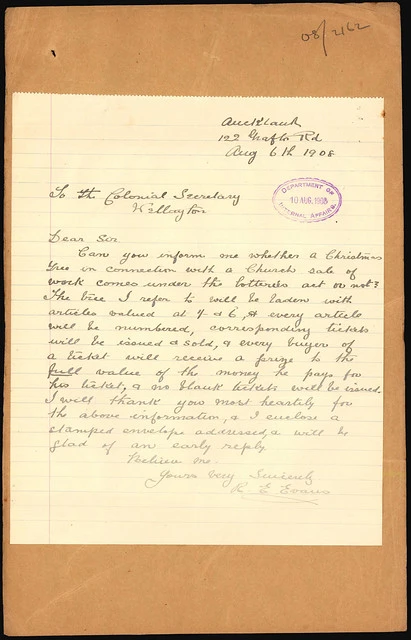 08/2162
Auckland
122 Grafton Rd
Aug 6th 1908
To the Colonial Secretary
Wellington
DEPARTMENT OF
10 AUG. 1908
INTERNAL AFFAIRS.
Dear Sir
Can you inform me whether a Christmas
Tree in connection with a Church sale of
work comes under the lotteries act or not?
The tree I refer to will be laden with
articles valued at 1/- & 6, & every article
will be numbered, corresponding tickets
will be issued & sold, & every buyer of
a ticket will receive a prize to the
full value of the money he pays for
his ticket, & no blank tickets will be issued.
I will thank you most heartily for
the above information, & I enclose a
stamped envelope addressed, & will be
glad of an early reply
Believe me
Yours Very Sincerely
R. E. Evans